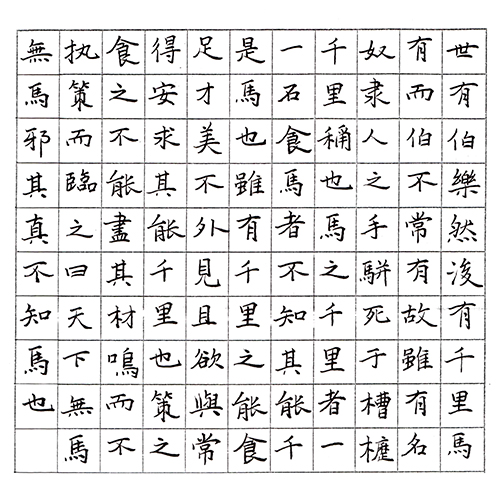 世有伯樂然後有千里馬
有而伯不常有故雖有名
奴隶人之手駢死于槽櫪
千里稱也馬之千里者一
一石食馬者不知其能千
是馬也雖有千里之能食
足才美不外見且欲與常
得安求其能千里也策之
食之不能盡其材鳴而不
执策而臨之曰天下無馬
無馬邪其真不知馬也